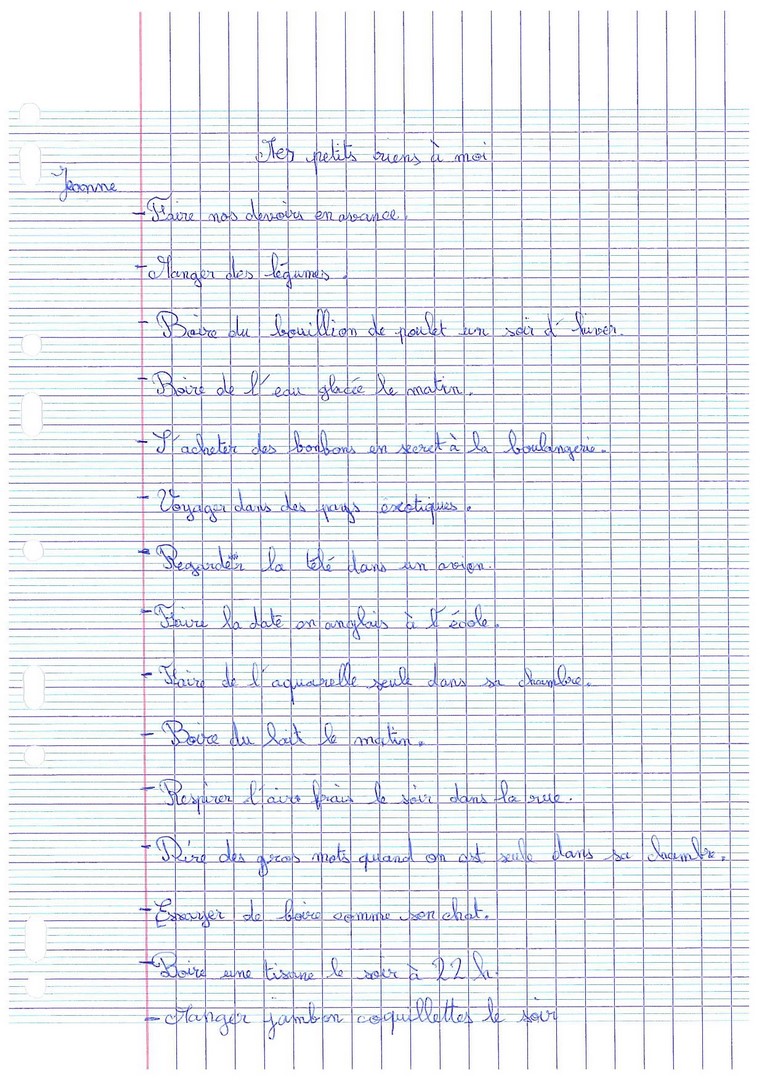 Mes petits riens à moi
Jeanne
- Faire nos devoirs en avance.
- Manger des légumes.
- Boire du bouillion de poulet un soir d'hiver.
- Boire de l'eau glacée le matin.
- S'acheter des bonbons en secret à la boulangerie.
- Voyager dans des pays exotiques.
- Regarder la télé dans un avion.
- Faire la date en anglais à l'école.
- Faire de l'aquarelle seule dans sa chambre.
- Boire du lait le matin.
- Respirer l'aire frais le soir dans la rue.
- Dire des gros mots quand on est seule dans sa chambre.
- Essayer de boire comme son chat.
- Boire une tisane le soir à 22 h.
- Manger jambon coquillettes le soir